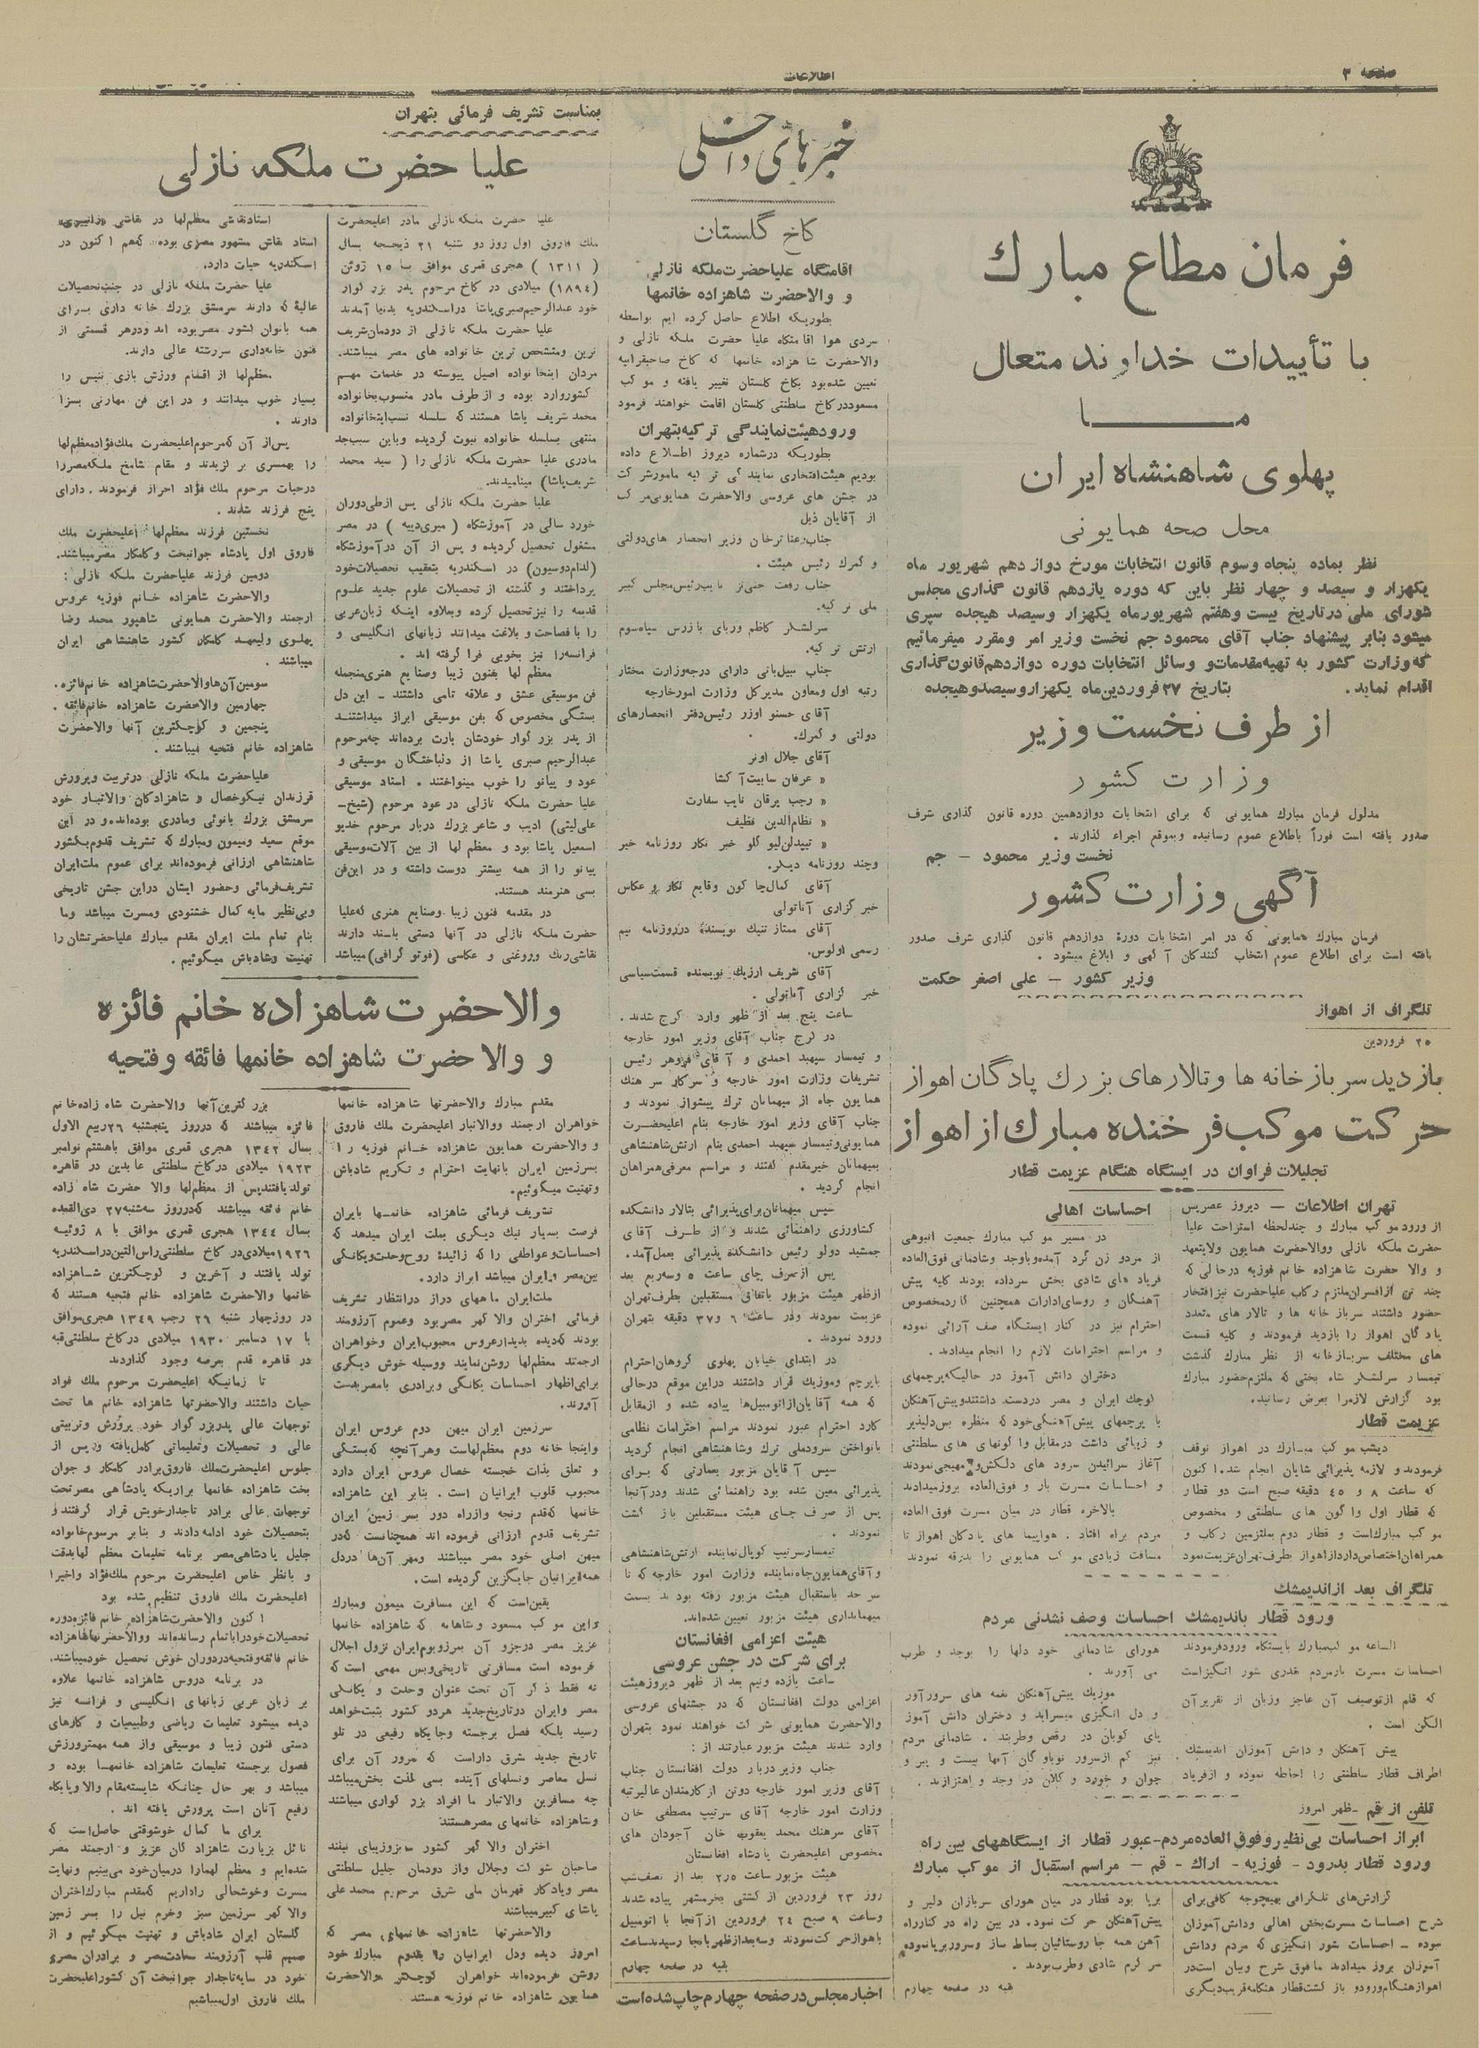 صفحه ۳
اطلاعات
فرمان مطاع مبارك
با تأییدات خداوند متعال
مـــا
پهلوی شاهنشاه ایران
محل صحه همایونی
نظر بماده پنجاه وسوم قانون انتخابات مورخ دوازدهم شهریور ماه
یکهزار و سیصد و چهار نظر باین که دوره یازدهم قانون گذاری مجلس
شورای ملی در تاریخ بیست وهفتم شهریورماه یکهزار وسیصد هیجده سپری
میشود بنابر پیشنهاد جناب آقای محمود جم نخست وزیر امر ومقرر میفرمائیم
که وزارت کشور به تهیه مقدمات و وسائل انتخابات دوره دوازدهم قانون گذاری
اقدام نماید. بتاریخ ۲۷ فروردین ماه یکهزار وسیصد وهیجده
از طرف نخست وزیر
وزارت کشور
مدلول فرمان مبارك همایونی که برای انتخابات دوازدهمین دوره قانون گذاری شرف
صدور یافته است فوراً باطلاع عموم رسانیده وبموقع اجراء گذارند.
نخست وزیر محمود - جم
آگهی وزارت کشور
فرمان مبارك همایونی که در امر انتخابات دورهٔ دوازدهم قانون گذاری شرف صدور
یافته است برای اطلاع عموم انتخاب کنندگان آگهی و ابلاغ میشود.
وزیر کشور - علی اصغر حکمت
تلگراف از اهواز
۲۵ فروردین
بازدید سربازخانه ها و تالارهای بزرك پادگان اهواز
حرکت موکب فرخنده مبارك از اهواز
تجلیلات فراوان در ایستگاه هنگام عزیمت قطار
تهران اطلاعات - دیروز عصر پس
از ورود موکب مبارك و چند لحظه استراحت علیا
حضرت ملکه نازلی ووالاحضرت همایون ولایتعهد
و والا حضرت شاهزاده خانم فوزیه در حالی که
چند تن از افسران ملتزم رکاب علیاحضرت نیز افتخار
حضور داشتند سرباز خانه ها و تالار های متعدد
پادگان اهواز را بازدید فرمودند و کلیه قسمت
های مختلف سربازخانه از نظر مبارك گذشت
تیمسار سرلشکر شاه بختی که ملتزم حضور مبارك
بود گزارش لازمرا بعرض رسانید.
عزیمت قطار
دیشب موکب مبارك در اهواز توقف
فرمودند و لازمه پذیرائی شایان انجام شد. اکنون
که ساعت ۸ و ٤٥ دقیقه صبح است دو قطار
که قطار اول واگون های سلطنتی و مخصوص
موکب مبارك است و قطار دوم بملتزمین رکاب و
همراهان اختصاص دارد از اهواز بطرف تهران عزیمت نمود
احساسات اهالی
در مسیر موکب مبارك جمعیت انبوهی
از مردو زن گرد آمده باوجد وشادمانی فوق العاده
فریاد های شادی بخش سرداده بودند کلیه پیش
آهنگان و روسای ادارات همچنین گارد مخصوص
احترام نیز در کنار ایستگاه صف آرائی نموده
و مراسم احترامات لازم را انجام میدادند.
دختران دانش آموز در حالیکه پرچمهای
کوچك ایران و مصر در دست داشتند و پیش آهنگان
با پرچمهای پیش آهنگی خود که منظره بس دلپذیر
و زیبائی داشت در مقابل واگونهای های سلطنتی
آغاز سرائیدن سرود های دلکش و مهیجی نمودند
و احساسات مسرت بار و فوق العاده بروز میدادند
بالاخره قطار در میان احساسات فوق العاده
مردم براه افتاد. هواپیما های پادگان اهواز تا
مسافت زیادی موکب همایونی را بدرقه نمودند
تلگراف بعد از اندیمشك
ورود قطار باندیمشك احساسات وصف نشدنی مردم
الساعه موکب مبارك بایستگاه ورود فرمودند
احساسات مسرت بار مردم بقدری شور انگیز است
که قلم از توصیف آن عاجز وزبان از تقریر آن
الکن است.
پیش آهنگان و دانش آموزان اندیمشك
اطراف قطار سلطنتی را احاطه نموده و از فریاد
هورای شادمانی خود دلها را بوجد و طرب
می آورند.
موزیك پیش آهنگان نغمه های سرورآور
و دل انگیزی میسراید و دختران دانش آموز
پای کوبان در رقص وطربند. شادمانی مردم
نیز کم از سرور نوباوگان آنها نیست و پیر و
جوان و خورد و کلان در وجد و اهتزازند.
تلفن از قم - ظهر امروز
ابراز احساسات بی نظیر وفوق العاده مردم - عبور قطار از ایستگاههای بین راه
ورود قطار بدرود - فوزیه - اراك - قم - مراسم استقبال از موکب مبارك
گزارش های تلگرافی بهیچوجه کافی برای
شرح احساسات مسرت بخش اهالی ودانش آموزان
نبوده - احساسات شور انگیزی که مردم ودانش
آموزان بروز میدادند مافوق شرح و بیان است در
اهواز هنگام ورود و باز گشت قطار هنگامه غریب دیگری
برپا بود قطار در میان هورای سربازان دلیر و
پیش آهنگان حرکت نمود. در بین راه در کنار راه
آهن همه جا روستائیان بساط ساز و سرور برپا نموده
سرگرم شادی وطرب بودند.
بقیه در صفحه چهارم
خبرهای داخلی
کاخ گلستان
اقامتگاه علیاحضرت ملکه نازلی
و والاحضرت شاهزاده خانمها
بطوریکه اطلاع حاصل کرده ایم بواسطه
سردی هوا اقامتگاه علیا حضرت ملکه نازلی و
والاحضرت شاهزاده خانمها که کاخ صاحبقرانیه
تعیین شده بود بکاخ گلستان تغییر یافته و موکب
مسعود در کاخ سلطنتی گلستان اقامت خواهند فرمود
ورود هیئت نمایندگی ترکیه بتهران
بطوریکه درشماره دیروز اطلاع داده
بودیم هیئت افتخاری نمایندگی ترکیه مامور شرکت
در جشن های عروسی والاحضرت همایونی مرکب
از آقایان ذیل
جناب رعنا ترخان وزیر انحصار های دولتی
و گمرك رئیس هیئت.
جناب رفعت نایب رئیس مجلس کبیر
ملی ترکیه.
سرلشکر کاظم وربای بازرس سپاه سوم
ارتش ترکیه.
جناب نبیل باتی دارای درجه وزارت مختار
رتبه اول ومعاون مدیر کل وزارت امور خارجه
آقای حسنو اوزر رئیس دفتر انحصارهای
دولتی و گمرك.
آقای جلال اونر
« عرفان سابیت آکشا
« رجب یرقان نایب سفارت
« نظام الدین فظیف
« نیبدلن لیو گلو خبر نگار روزنامه خبر
وچند روزنامه دیگر.
آقای کمال چاکون وقایع نگار و عکاس
خبر گزاری آناتولی
آقای ممتاز تنیك نویسندهٔ در روزنامه نیم
رسمی اولوس.
آقای شریف ارزیك نویسنده قسمت سیاسی
خبر گزاری آناتولی.
ساعت پنج بعد از ظهر وارد کرج شدند.
در کرج جناب آقای وزیر امور خارجه
و تیمسار سپهبد احمدی و آقای فروهر رئیس
تشریفات وزارت امور خارجه و سرکار سرهنك
همایون جاه از میهمانان ترك پیشواز نمودند و
جناب آقای وزیر امور خارجه بنام اعلیحضرت
همایونی وتیمسار سپهبد احمدی بنام ارتش شاهنشاهی
بمیهمانان خیر مقدم گفتند و مراسم معرفی همراهان
انجام گردید.
سپس میهمانان برای پذیرائی بتالار دانشکده
کشاورزی راهنمائی شدند و از طرف آقای
جمشید دولو رئیس دانشکده پذیرائی بعمل آمد.
پس از صرف چای ساعت ٥ وسه ربع بعد
از ظهر هیئت مزبور باتفاق مستقبلین بطرف تهران
عزیمت نمودند ودر ساعت ٦ و ۳۷ دقیقه بتهران
ورود نمودند.
در ابتدای خیابان پهلوی گروهان احترام
باپرچم وموزیك قرار داشتند دراین موقع در حالی
که همه آقایان از اتومبیل ها پیاده شده و از مقابل
گارد احترام عبور نمودند مراسم احترامات نظامی
بانواختن سرود ملی ترك وشاهنشاهی انجام گردید
سپس آقایان مزبور بعمارتی که برای
پذیرائی معین شده بود راهنمائی شدند ودرآنجا
پس از صرف چای هیئت مستقبلین باز گشت
نمودند.
تیمسار سرتیپ کوپال نماینده ارتش شاهنشاهی
و آقای همایون جاه نماینده وزارت امور خارجه که تا
سر حد باستقبال هیئت مزبور رفته بودند بسمت
میهمانداری هیئت مزبور تعیین شده اند.
هیئت اعزامی افغانستان
برای شرکت در جشن عروسی
ساعت یازده ونیم بعد از ظهر دیروز هیئت
اعزامی دولت افغانستان که در جشنهای عروسی
والاحضرت همایونی شرکت خواهند نمود بتهران
وارد شدند هیئت مزبور عبارتند از:
جناب وزیر دربار دولت افغانستان جناب
آقای وزیر امور خارجه دوتن از کارمندان عالیرتبه
وزارت امور خارجه آقای سرتیپ مصطفی خان
آقای سرهنك محمد یعقوب خان آجودان های
مخصوص اعلیحضرت پادشاه افغانستان
هیئت مزبور ساعت ۲٫۵ بعد از نصف شب
روز ۲۳ فروردین از کشتی بخرمشهر پیاده شدند
وساعت ۹ صبح ۲٤ فروردین از آنجا با اتومبیل
باهواز حرکت نمودند وسه بعد از ظهر بانجا رسیدند ساعت
بقیه در صفحه چهارم
اخبار مجلس در صفحه چهارم چاپ شده است
بمناسبت تشریف فرمائی بتهران
علیا حضرت ملکه نازلی
علیا حضرت ملکه نازلی مادر اعلیحضرت
ملك فاروق اول روز دو شنبه ۲۱ ذیحجه بسال
( ۱۳۱۱ ) هجری قمری موافق با ۱۵ ژوئن
(۱۸۹٤) میلادی در کاخ مرحوم پدر بزرگوار
خود عبدالرحیم صبری پاشا در اسکندریه بدنیا آمدند
علیا حضرت ملکه نازلی از دودمان شریف
ترین ومتشخص ترین خانواده های مصر میباشند.
مردان اینخانواده اصیل پیوسته در خدمات مهم
کشور وارد بوده و از طرف مادر منسوب بخانواده
محمد شریف پاشا هستند که سلسله نسب اینخانواده
منتهی بسلسله خانواده نبوت گردیده و باین سبب جد
مادری علیا حضرت ملکه نازلی را ( سید محمد
شریف پاشا) مینامیدند.
علیا حضرت ملکه نازلی پس از طی دوران
خورد سالی در آموزشگاه ( میردیدیه ) در مصر
مشغول تحصیل گردیده و پس از آن در آموزشگاه
(لدام دوسیون) در اسکندریه بتعقیب تحصیلات خود
پرداختند و گذشته از تحصیلات علوم جدید علوم
قدیمه را نیز تحصیل کرده و بعلاوه اینکه زبان عربی
را با فصاحت و بلاغت میدانند زبانهای انگلیسی و
فرانسه را نیز بخوبی فرا گرفته اند.
معظم لها بفنون زیبا وصنایع هنری منجمله
فن موسیقی عشق و علاقه تامی داشتند - این دل
بستگی مخصوص که بفن موسیقی ابراز میداشتند
از پدر بزرگوار خودشان بارث برده اند چه مرحوم
عبدالرحیم صبری پاشا از دلباختگان موسیقی و
عود و پیانو را خوب مینواختند. استاد موسیقی
علیا حضرت ملکه نازلی در عود مرحوم (شیخ-
علی لیثی) ادیب و شاعر بزرك دربار مرحوم خدیو
اسمعیل پاشا بود و معظم لها از بین آلات موسیقی
پیانو را از همه بیشتر دوست داشته و در این فن
بسی هنرمند هستند.
در مقدمه فنون زیبا وصنایع هنری که علیا
حضرت ملکه نازلی در آنها دستی بلند دارند
نقاشی رنك وروغنی و عکاسی (فوتو گرافی) میباشد
استاد نقاشی معظم لها در نقاشی
استاد نقاش مشهور مصری بوده که هم اکنون در
اسکندریه حیات دارد.
علیا حضرت ملکه نازلی در جنب تحصیلات
عالیهٔ که دارند سرمشق بزرك خانه داری برای
همه بانوان کشور مصر بوده اند ودرهر قسمتی از
فنون خانه داری سررشته عالی دارند.
معظم لها از اقسام ورزش بازی تنیس را
بسیار خوب میدانند و در این فن مهارتی بسزا
دارند.
پس از آن که مرحوم اعلیحضرت ملك فؤاد معظم لها
را بهمسری برگزیدند و مقام شامخ ملکه مصر را
درحیات مرحوم ملك فؤاد احراز فرمودند. دارای
پنج فرزند شدند.
نخستین فرزند معظم لها اعلیحضرت ملك
فاروق اول پادشاه جوانبخت وکامکار مصر میباشند.
دومین فرزند علیاحضرت ملکه نازلی:
والاحضرت شاهزاده خانم فوزیه عروس
ارجمند والاحضرت همایونی شاهپور محمد رضا
پهلوی ولیعهد کامکار کشور شاهنشاهی ایران
میباشند.
سومین آن ها والاحضرت شاهزاده خانم فائزه.
چهارمین والاحضرت شاهزاده خانم فائقه.
پنجمین و کوچکترین آنها والاحضرت
شاهزاده خانم فتحیه میباشند.
علیاحضرت ملکه نازلی در تربیت وپرورش
فرزندان نیکو خصال و شاهزادگان والاتبار خود
سرمشق بزرك بانوئی ومادری بوده اند و در این
موقع سعید ومیمون ومبارك که تشریف قدوم بکشور
شاهنشاهی ارزانی فرموده اند برای عموم ملت ایران
تشریف فرمائی وحضور ایشان دراین جشن تاریخی
وبی نظیر مایه کمال خشنودی ومسرت میباشد وما
بنام تمام ملت ایران مقدم مبارك علیاحضرتشان را
تهنیت وشادباش میگوئیم.
والاحضرت شاهزاده خانم فائزه
و والا حضرت شاهزاده خانمها فائقه و فتحیه
مقدم مبارك والاحضرتها شاهزاده خانمها
خواهران ارجمند ووالاتبار اعلیحضرت ملك فاروق
و والاحضرت همایون شاهزاده خانم فوزیه را
بسرزمین ایران بانهایت احترام و تکریم شادباش
وتهنیت میگوئیم.
تشریف فرمائی شاهزاده خانمها بایران
فرصت بسیار نیك دیگری بملت ایران میدهد که
احساسات وعواطفی را که زائیدهٔ روح وحدت ویگانگی
بین مصر و ایران میباشد ابراز دارد.
ملت ایران ماههای دراز درانتظار تشریف
فرمائی اختران والا گهر مصر بود وعموم آرزومند
بودند که دیده بدیدار عروس محبوب ایران وخواهران
ارجمند معظم لها روشن نمایند ووسیله خوش دیگری
برای اظهار احساسات یگانگی و برادری با مصر بدست
آورند.
سرزمین ایران میهن دوم عروس ایران
واینجا خانه دوم معظم لهاست وهر آنچه که بستگی
و تعلق بذات خجسته خصال عروس ایران دارد
محبوب قلوب ایرانیان است. بنابر این شاهزاده
خانمها که قدم رنجه وازراه دور بسر زمین ایران
تشریف قدوم ارزانی فرموده اند همچنانست که در
میهن اصلی خود مصر میباشند ومهر آن ها در دل
همه ایرانیان جایگزین گردیده است.
یقین است که این مسافرت میمون ومبارك
و این موکب مسعود و شاهانه که شاهزاده خانمها
عزیز مصر درجزو آن بمرزوبوم ایران نزول اجلال
فرموده است مسافرتی تاریخی وبس مهمی است که
نه فقط ذکر آن تحت عنوان وحدت و یگانگی
مصر وایران درتاریخ جدید هردو کشور ثبت خواهد
رسید بلکه فصل برجسته وجایگاه رفیعی در تلو
تاریخ جدید شرق داراست که مرور آن برای
نسل معاصر ونسلهای آینده بسی لذت بخش میباشد
چه مسافرین والاتبار ما افراد بزرگواری میباشند
وشاهزاده خانمهای مصر هستند.
اختران والا گهر کشور سبزوزیبای نیلند
صاحبان شوکت وجلال واز دودمان جلیل سلطنتی
مصر ویادگار قهرمان ملی شرق مرحوم محمد علی
پاشای کبیر میباشند
والاحضرتها شاهزاده خانمهای مصر که
امروز دیده ودل ایرانیان را بقدوم مبارك خود
روشن فرموده اند خواهران کوچکتر والاحضرت
همایون شاهزاده خانم فوزیه هستند
بزرگترین آنها والاحضرت شاه زاده خانم
فائزه میباشند که در روز پنجشنبه ۲٦ ربیع الاول
بسال ۱۳٤۲ هجری قمری موافق باهشتم نوامبر
۱۹۲۳ میلادی در کاخ سلطنتی عابدین در قاهره
تولد یافتند پس از معظم لها والا حضرت شاه زاده
خانم فائقه میباشند که در روز سه شنبه ۲۷ ذی القعده
بسال ۱۳٤٤ هجری قمری موافق با ۸ ژوئیه
۱۹۲٦ میلادی در کاخ سلطنتی راس التین در اسکندریه
تولد یافتند و آخرین و کوچکترین شاهزاده
خانمها والاحضرت شاهزاده خانم فتحیه هستند که
در روز چهار شنبه ۲٦ رجب ۱۳٤۹ هجری موافق
با ۱۷ دسامبر ۱۹۳۰ میلادی در کاخ سلطنتی قبه
در قاهره قدم بعرصه وجود گذاردند
تا زمانیکه اعلیحضرت مرحوم ملك فؤاد
حیات داشتند والاحضرتها شاهزاده خانم ها تحت
توجهات عالی پدر بزرگوار خود پرورش وتربیتی
عالی و تحصیلات وتعلیماتی کامل یافته وپس از
جلوس اعلیحضرت ملك فاروق برادر کامکار و جوان
بخت شاهزاده خانمها براریکه پادشاهی مصر تحت
توجهات عالی برادر تاجدار خویش قرار گرفتند و
بتحصیلات خود ادامه دادند و بنابر مرسوم خانواده
جلیل پادشاهی مصر برنامه تعلیمات معظم لها بدقت
و بانظر خاص اعلیحضرت مرحوم ملك فؤاد واخیرا
اعلیحضرت ملك فاروق تنظیم شده بود
اکنون والاحضرت شاهزاده خانم فائزه دوره
تحصیلات خود را باتمام رسانده اند ووالاحضرتها شاهزاده
خانم فائقه وفتحیه در دوران خوش تحصیل خود میباشند.
در برنامه دروس شاهزاده خانمها علاوه
بر زبان عربی زبانهای انگلیسی و فرانسه نیز
دیده میشود تعلیمات ریاضی وطبیعیات و کارهای
دستی فنون زیبا و موسیقی واز همه مهمتر ورزش
فصول برجسته تعلیمات شاهزاده خانمها بوده و
میباشد و بهر حال چنانکه شایسته مقام والا وپایگاه
رفیع آنان است پرورش یافته اند.
برای ما کمال خوشوقتی حاصل است که
نائل بزیارت شاهزادگان عزیز و ارجمند مصر
شده ایم و معظم لهمارا درمیان خود می بینیم ونهایت
مسرت وخوشحالی راداریم که مقدم مبارك اختران
والا گهر سرزمین سبز وخرم نیل را بسر زمین
گلستان ایران شادباش و تهنیت میگوئیم و از
صمیم قلب آرزومند سعادت مصر و برادران مصری
خود در سایه تاجدار جوانبخت آن کشور اعلیحضرت
ملك فاروق اول میباشیم